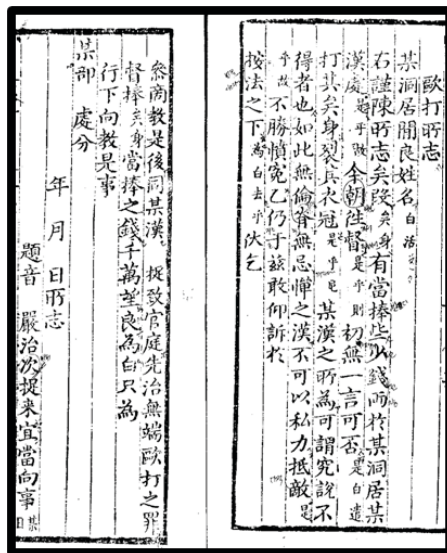 歐打所志
某洞居閑良姓名白活
右謹陳所志矣段矣身有當捧些少錢兩於某洞居某
漢處是乎所今朝往督是乎則初無一言可否是白遣
打其矣身裂其衣冠是乎某漢之所為可謂究說不
得者也如此無倫脊無忌憚之漢不可以私力抵敵是
乎故不勝憤寃乙仍于兹敢仰訴於
按法之下為白去乎伏乞
叅商教是後同某漢捉致官庭先治無端歐打之罪
督捧矣身當捧之錢千萬望良為白只為
行下向教是事
某部 處分
年 月 日所志
題音 嚴治次捉来宜當向事 某日